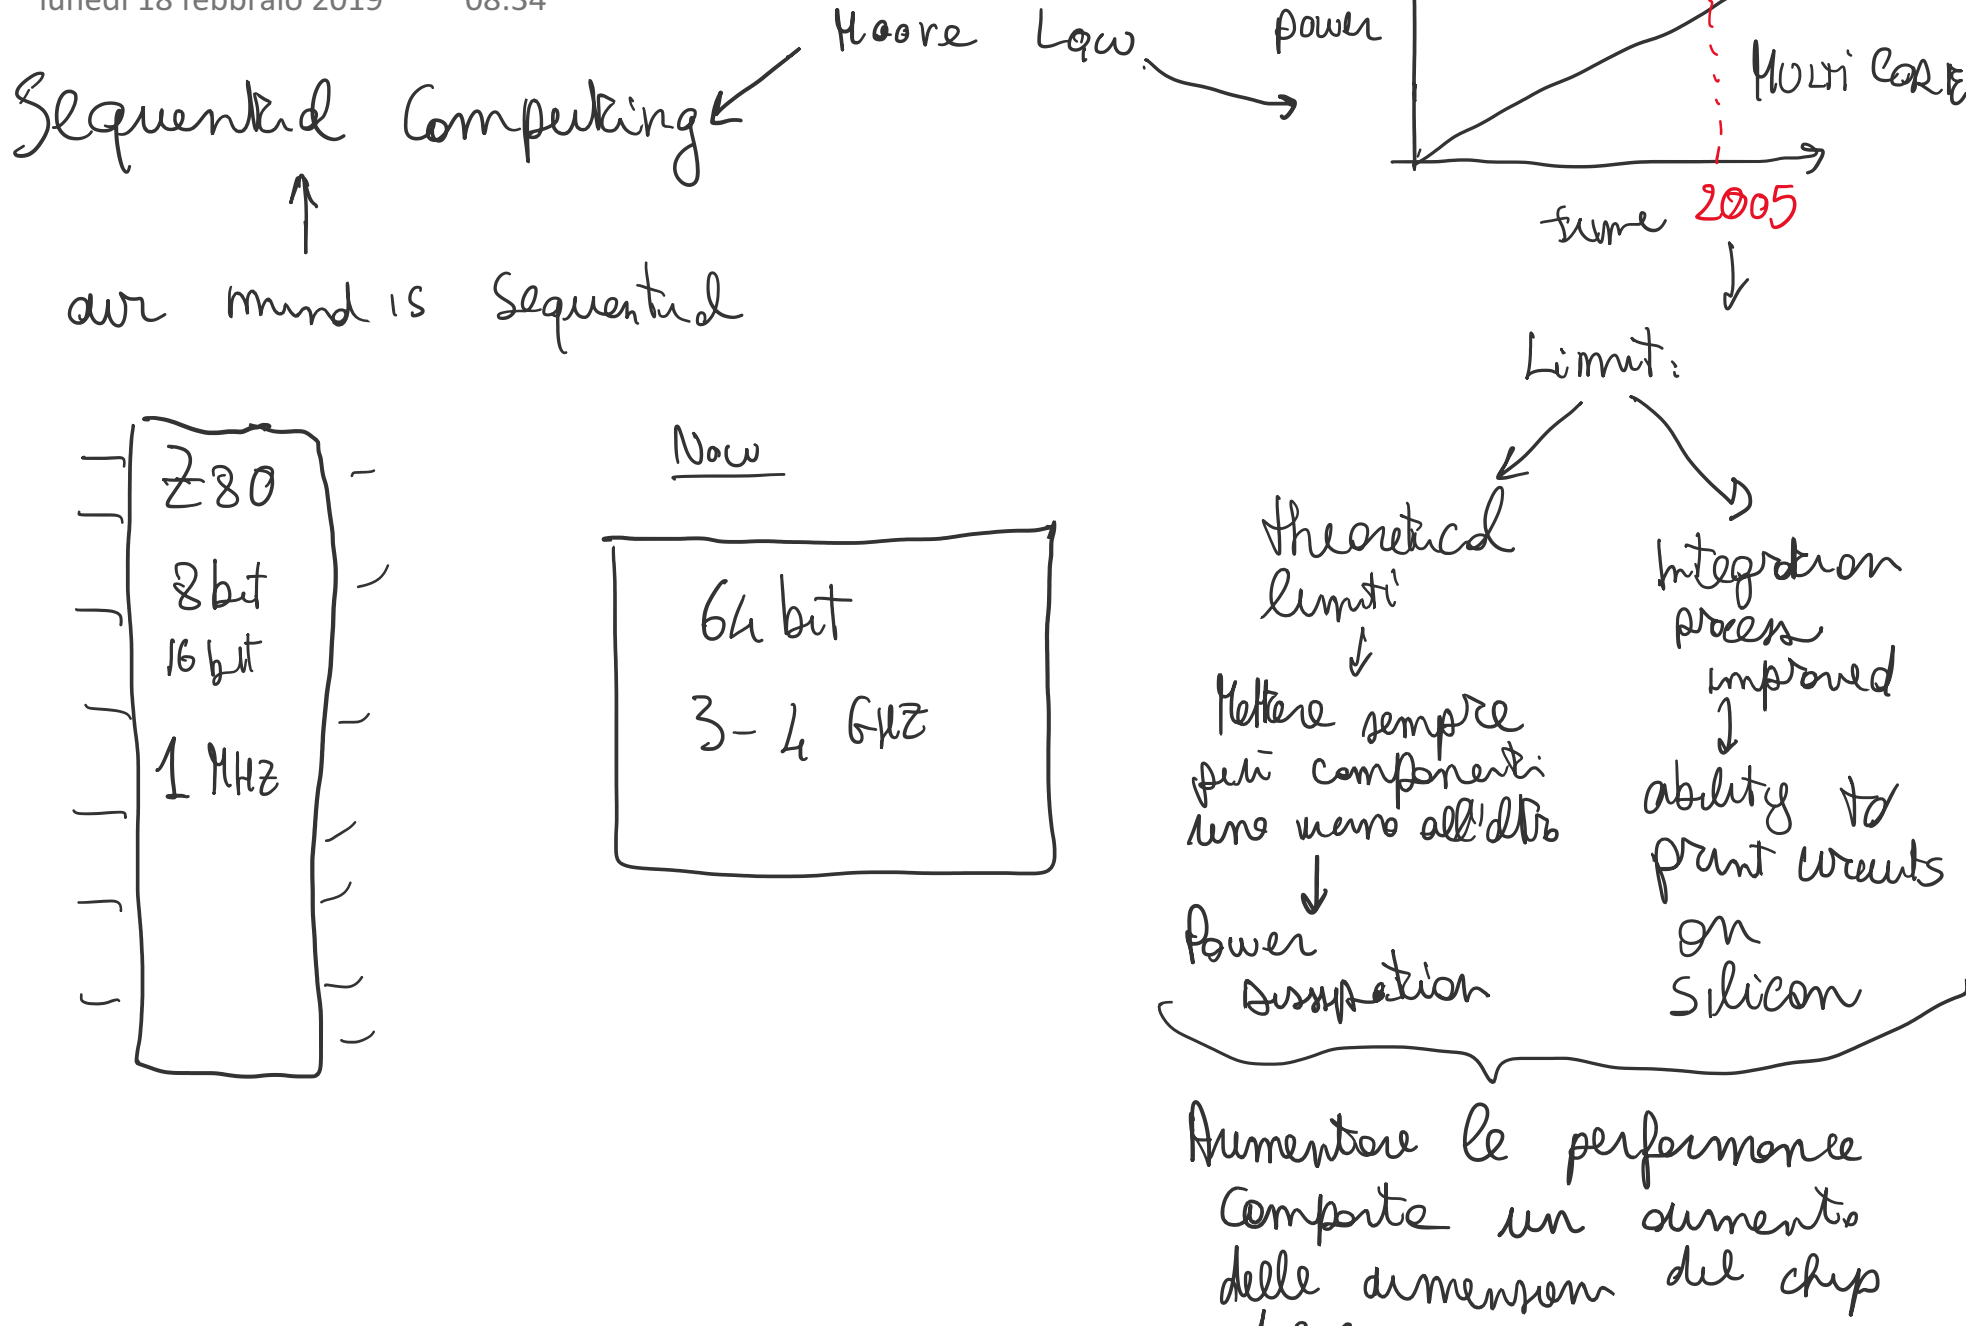 lunedì 18 febbraio 2019 08:34
Moore Law
Sequential Computing
our mind is sequential
power
MULTI CORE
time 2005
Limit:
Z80
8 bit
16 bit
1 MHz
Now
64 bit
3-4 GHz
theoretical
limiti
Mettere sempre
più componenti
uno vicino all'altro
Power
Dissipation
Integration
process
improved
ability to
print circuits
on
silicon
Aumentare le performance
comporta un aumento
delle dimensioni del chip